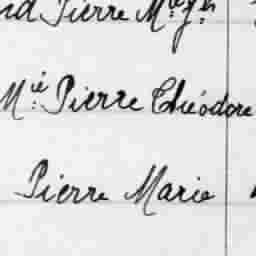 Pierre M.
M.ie Pierre Théodore
Pierre Marie